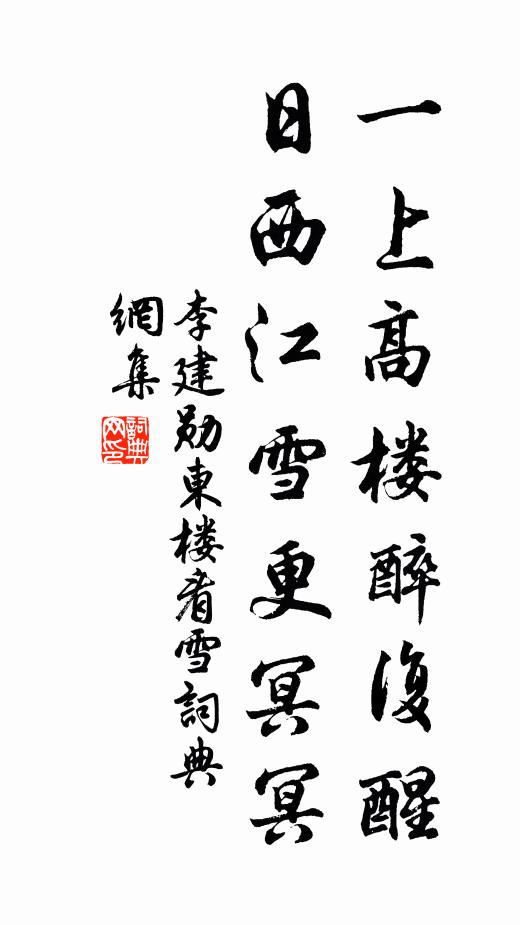 一上高楼醉復醒
日西江雪更冥冥
李建勋東楼看雪詞典
網集
詞典
网印